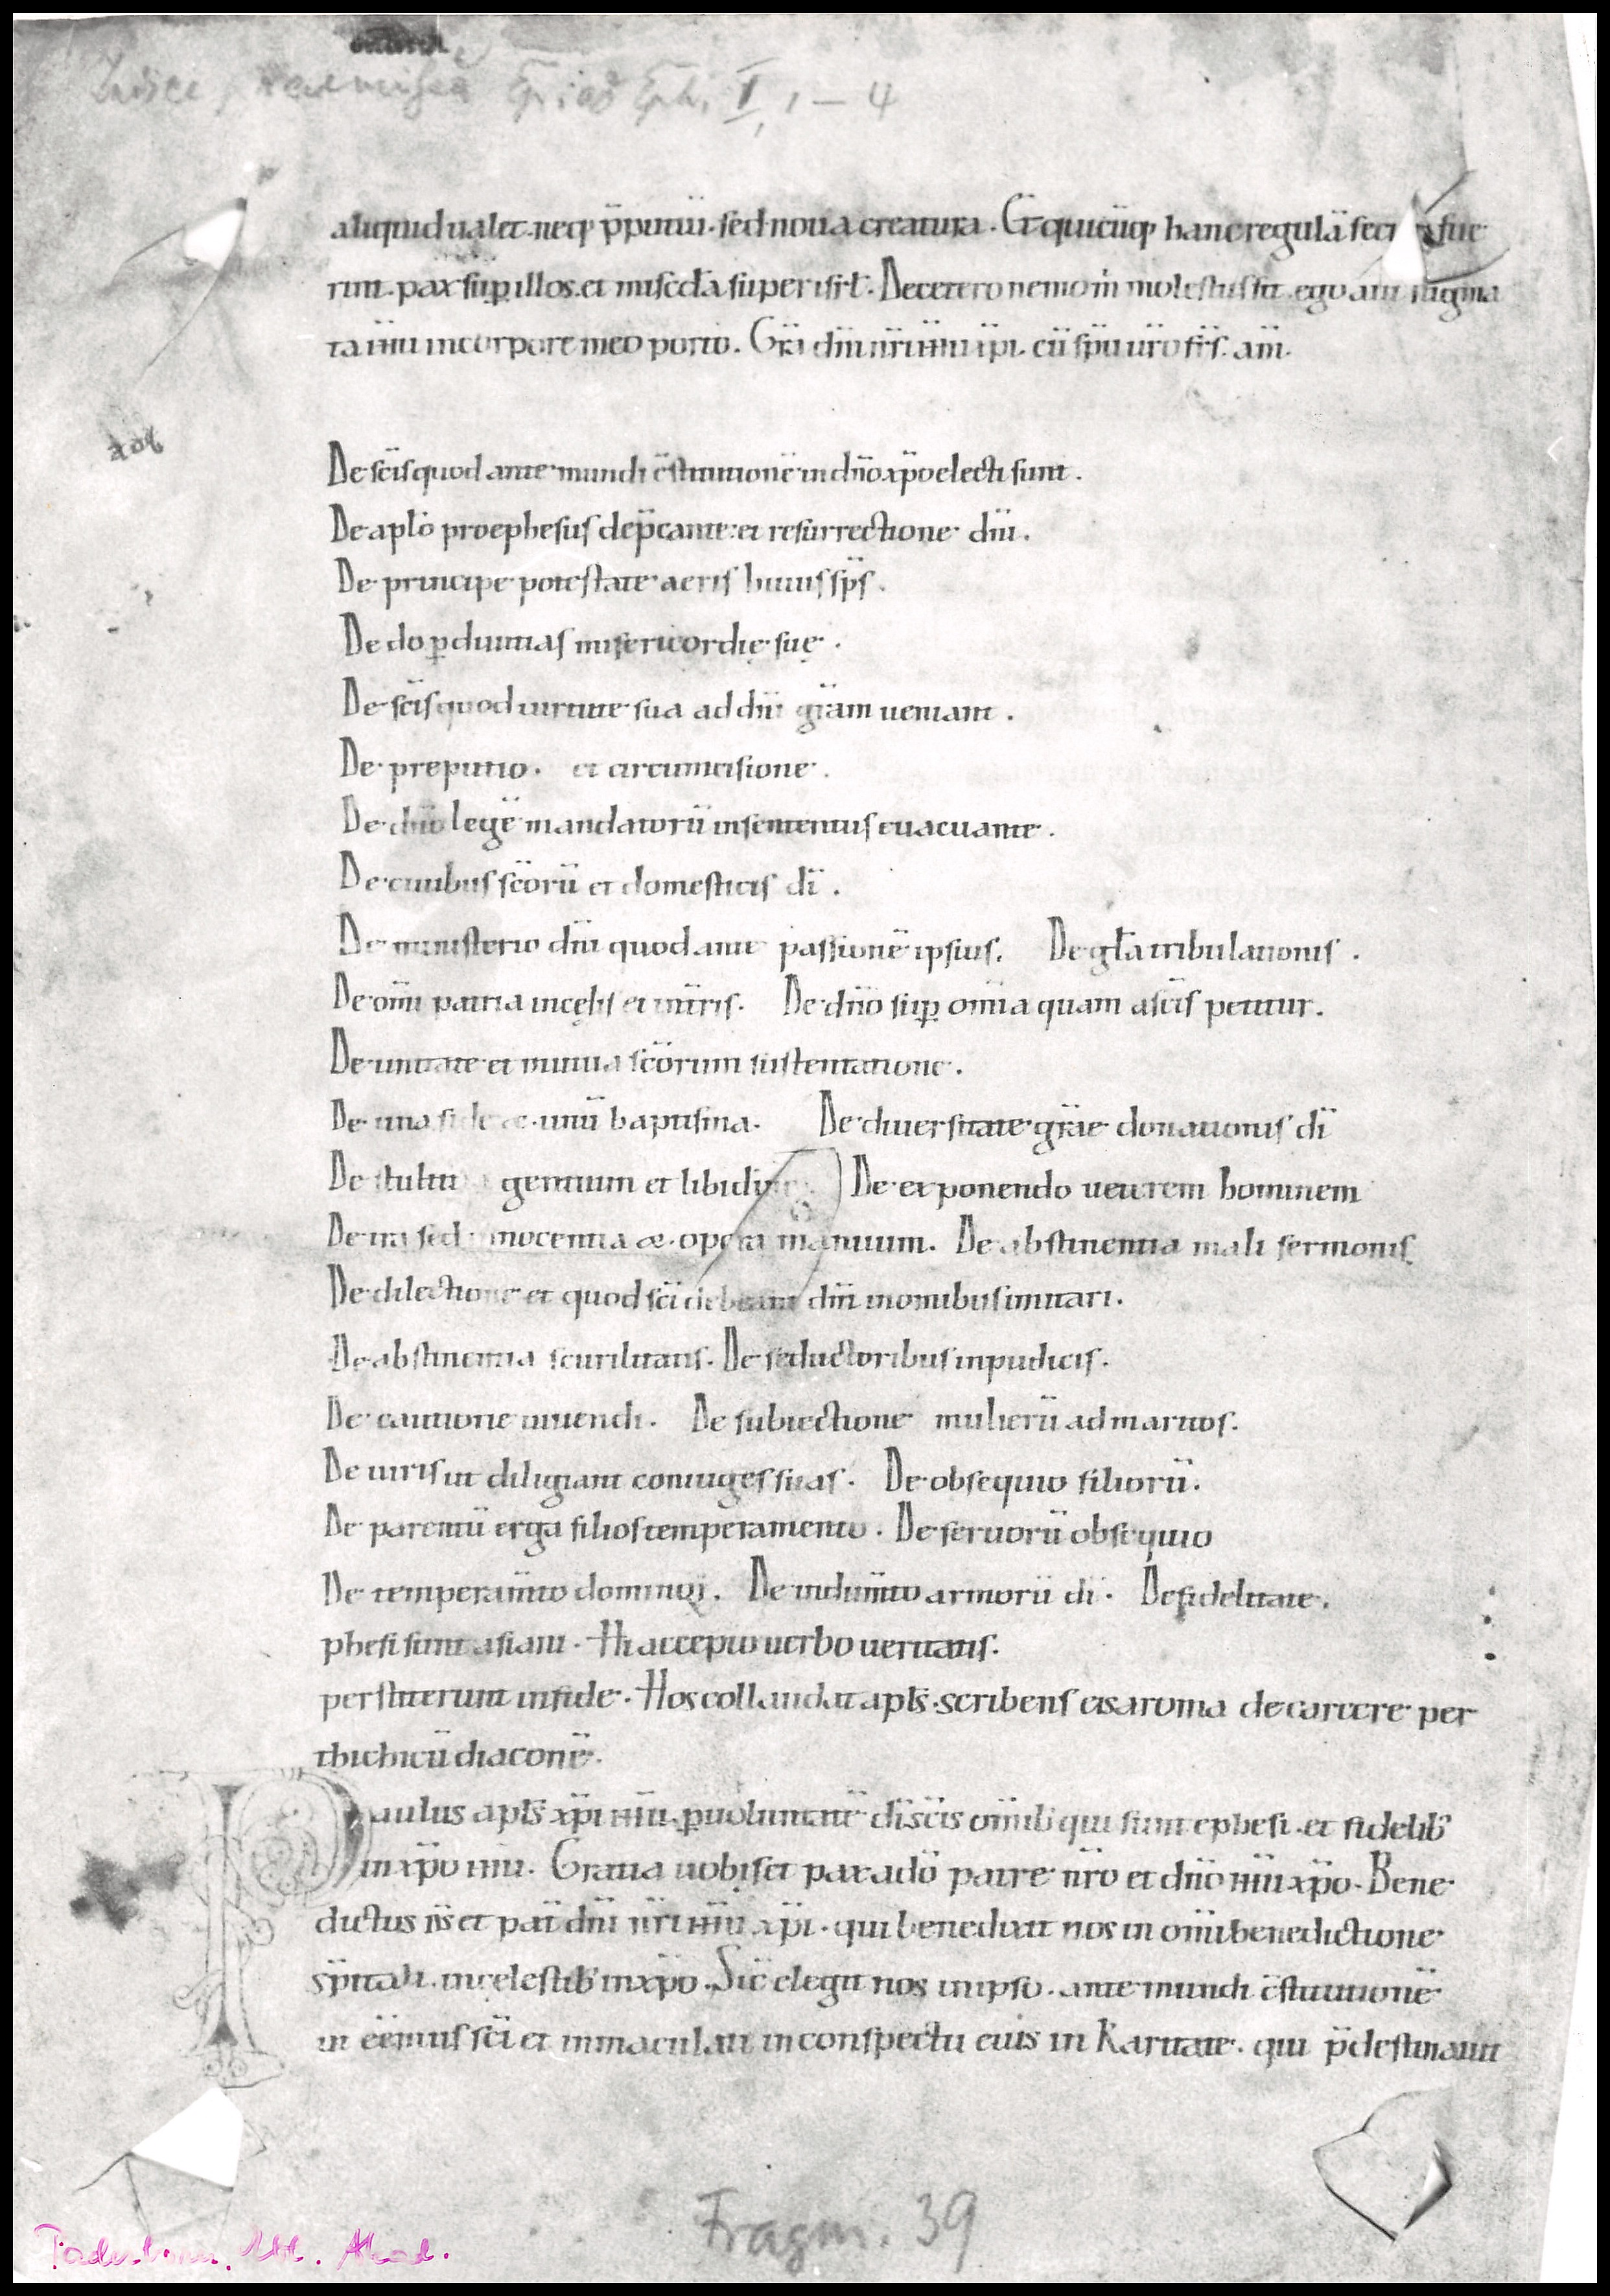 Ep. ad Eph. I, 1–4
aliquid ualet. neq; p̄putiū. sed noua creatura. Et quicūq; hanc regulā secu fue
rint. pax sup illos. et miscdā super isrl̄. De cetero nemo m̄ molestus sit. ego aut̄ stigma
ta ih̄u in corpore meo porto. Gr̄a dn̄i n̄ri ih̄u xp̄i. cū sp̄u ur̄o fr̄s. am̄.
De sc̄is quod ante mundi c̄stitutionē in dn̄o xp̄o electi sunt.
De aplo pro ephesus dep̄cante. et resurrectione dn̄i.
De principe potestate aeris huius sp̄s.
De do p̱ diuitias misericordię suę.
De sc̄is quod uirtute sua ad dn̄i gr̄am ueniant.
De preputio. et circumcisione.
De dn̄o legē mandatorū in sententiis euacuante.
De ciuibus sc̄orū et domesticis dī.
De ministerio dn̄i quod ante passionē ipsius. De gl̄a tribulationis.
De om̄i patria in cęlis et in t̄ris. De dn̄o sup om̄ia quam a sc̄is petitur.
De unitate et mutua sc̄orum sustentatione.
De una fide & unū baptisma. De diuersitate gr̄ae donationis dī
De stultitia gentium et libidine De exponendo ueterem hominem
De ira sed innocentia & opera manuum. De abstinentia mali sermonis
De dilectione et quod sc̄i debeant dn̄i in omnibus imitari.
De abstinentia scurilitatis. De seductoribus inpudicis.
De cautione uiuendi. De subiectione mulierū ad maritos.
De uiris ut diligiant coniuges suas. De obsequio filiorū.
De parentū erga filios temperamento. De seruorū obsequio
De temperam̄to dominoꝝ. De indum̄to armorū dī. De fidelitate.
phesi sunt asiani. Hi accepto uerbo ueritatis.
perstiterunt in fide. Hos collaudat apl̄s. scribens eis a roma de carcere per
thichicū diaconē.
Paulus apl̄s xp̄i ih̄u. p̱ uoluntatē dī sc̄is om̄ib; qui sunt ephesi. et fidelib;
in xp̄o ih̄u. Gratia uobis et pax a dō patre n̄ro et dn̄o ih̄u xp̄o. Bene
dictus d̄s et pat̄ dn̄i n̄ri ih̄u xp̄i. qui benedixit nos in om̄i benedictione
sp̄itali. in cęlestib; in xp̄o. Sic̄ elegit nos in ipso. ante mundi c̄stitutionē
ut eēmus sc̄i et inmaculati in conspectu eius in karitate. qui p̄destinauit
Fragm. 39
Paderborn, Bibl. Akad.